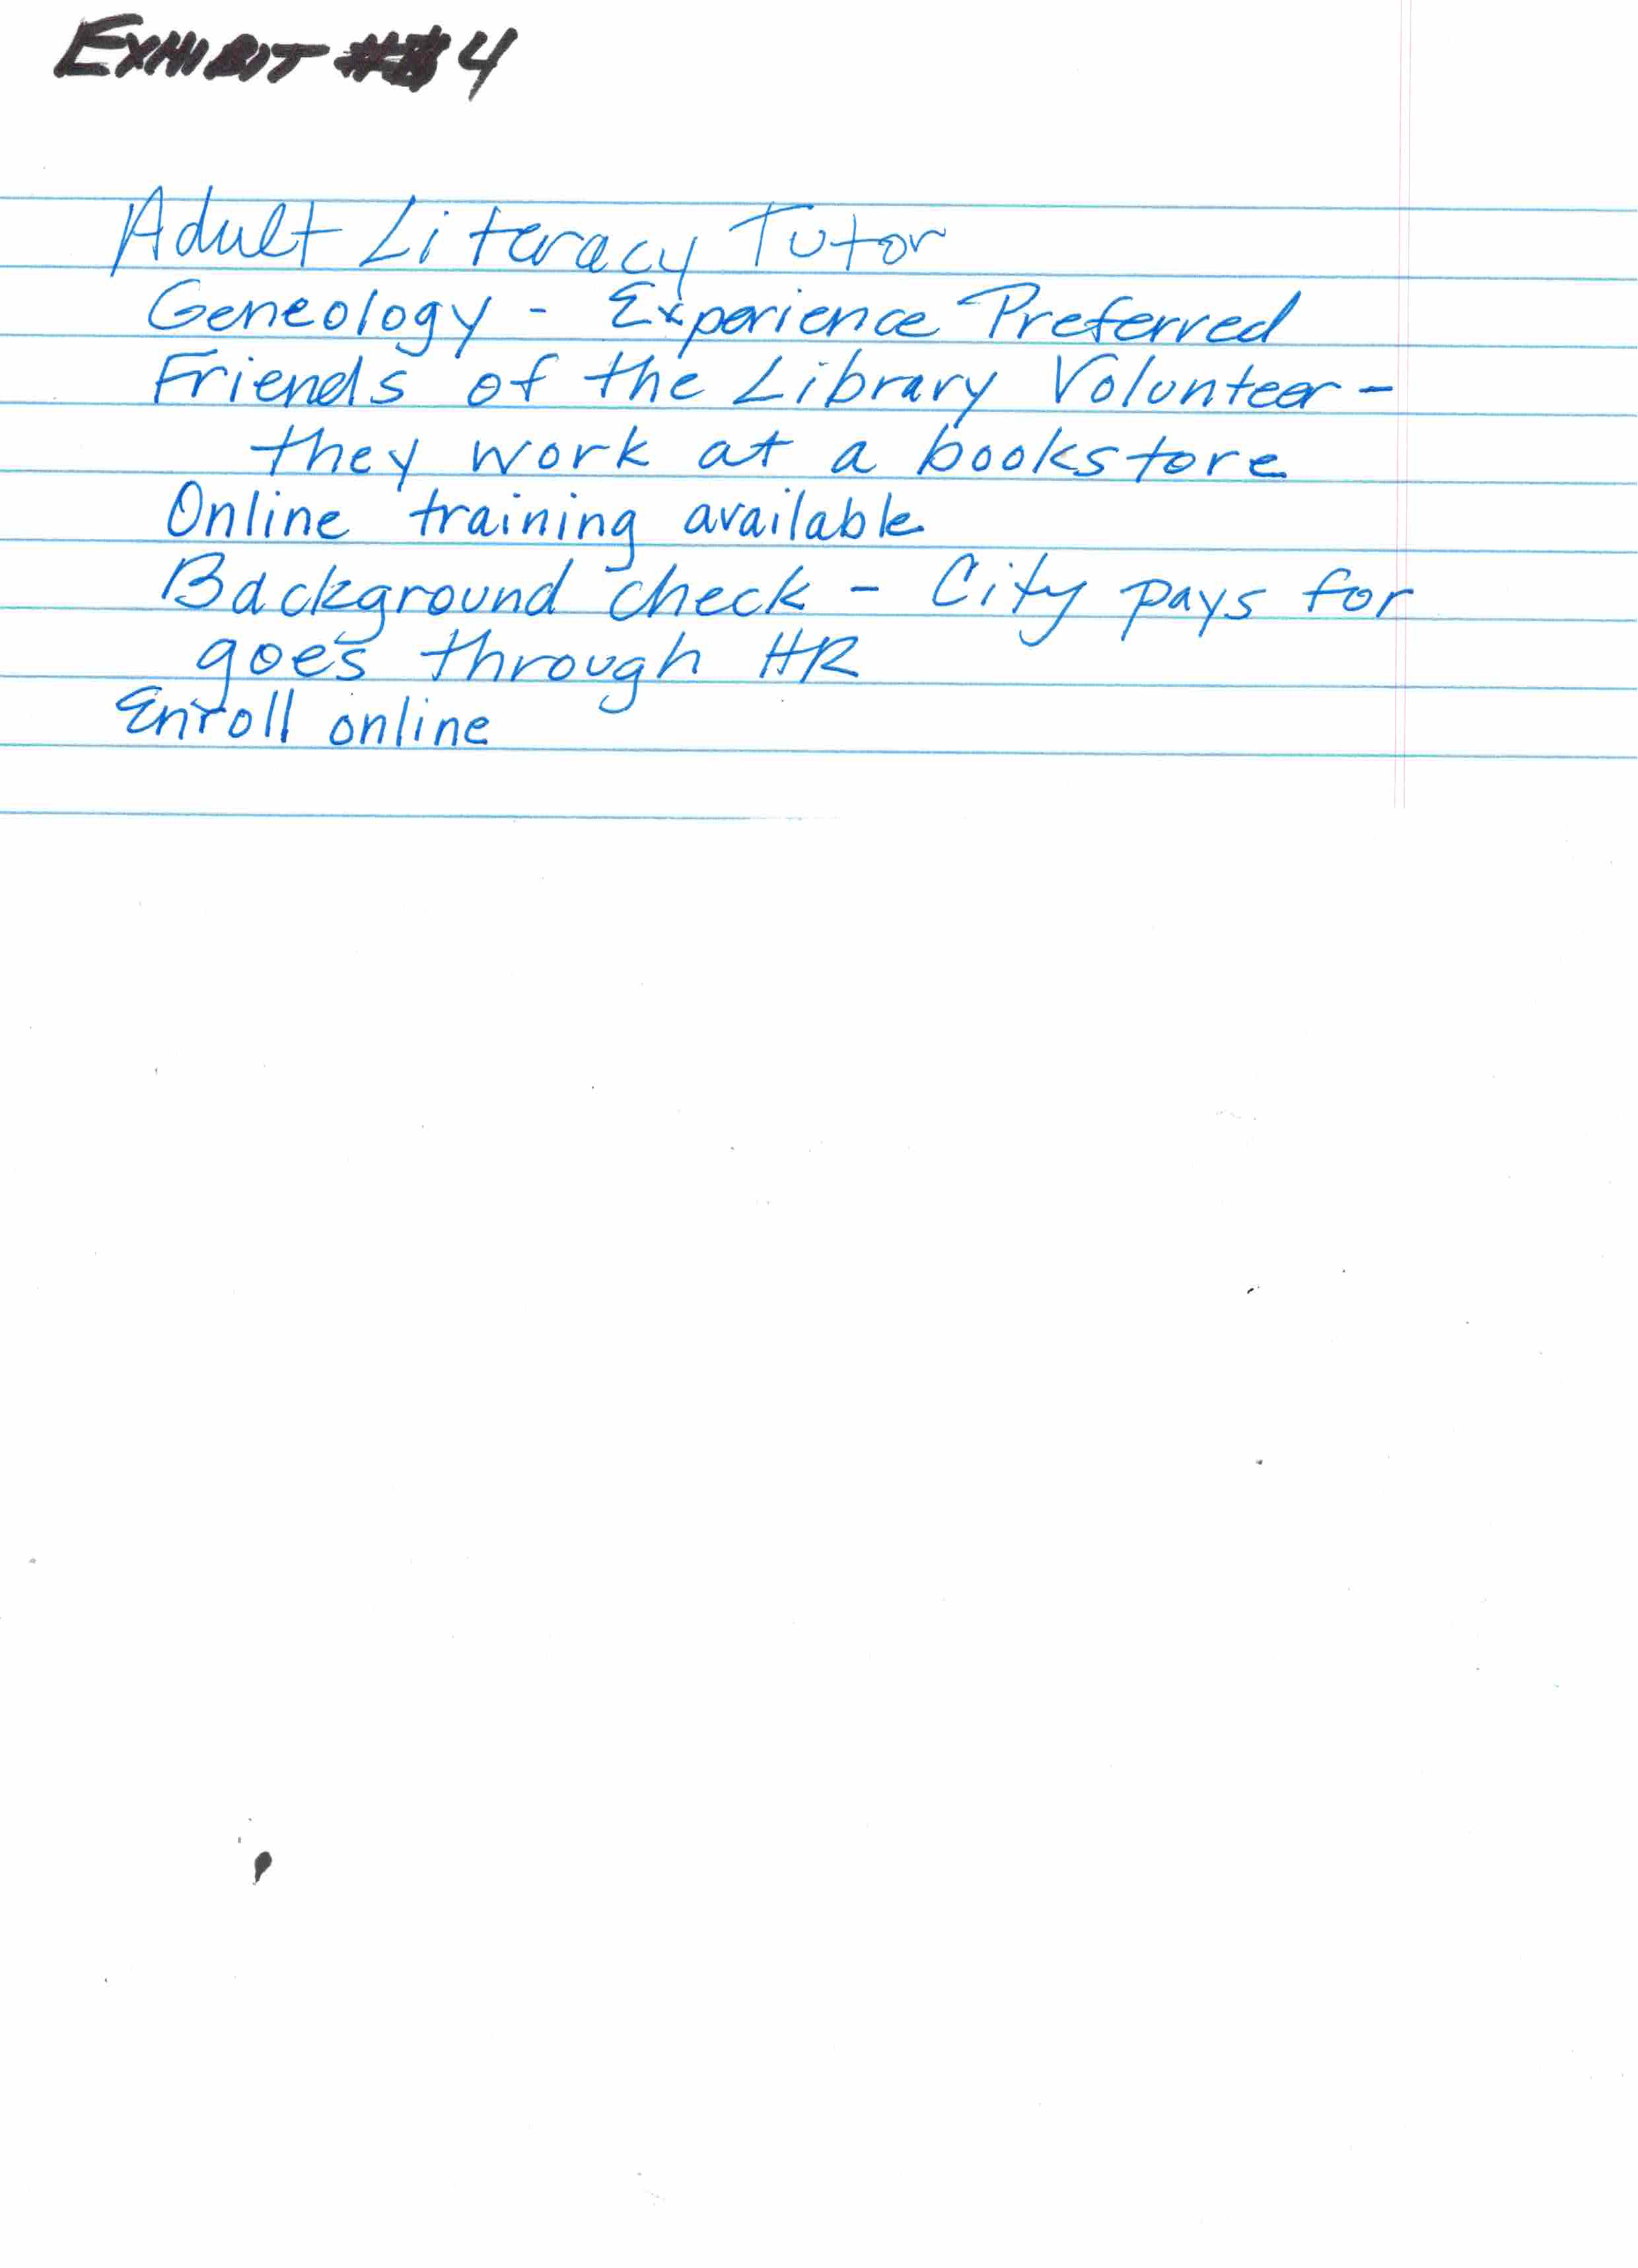 EXHIBIT # 4
Adult Literacy Tutor
Geneology - Experience Preferred
Friends of the Library Volunteer -
they work at a bookstore
Online training available
Background check - City pays for
goes through HR
Enroll online